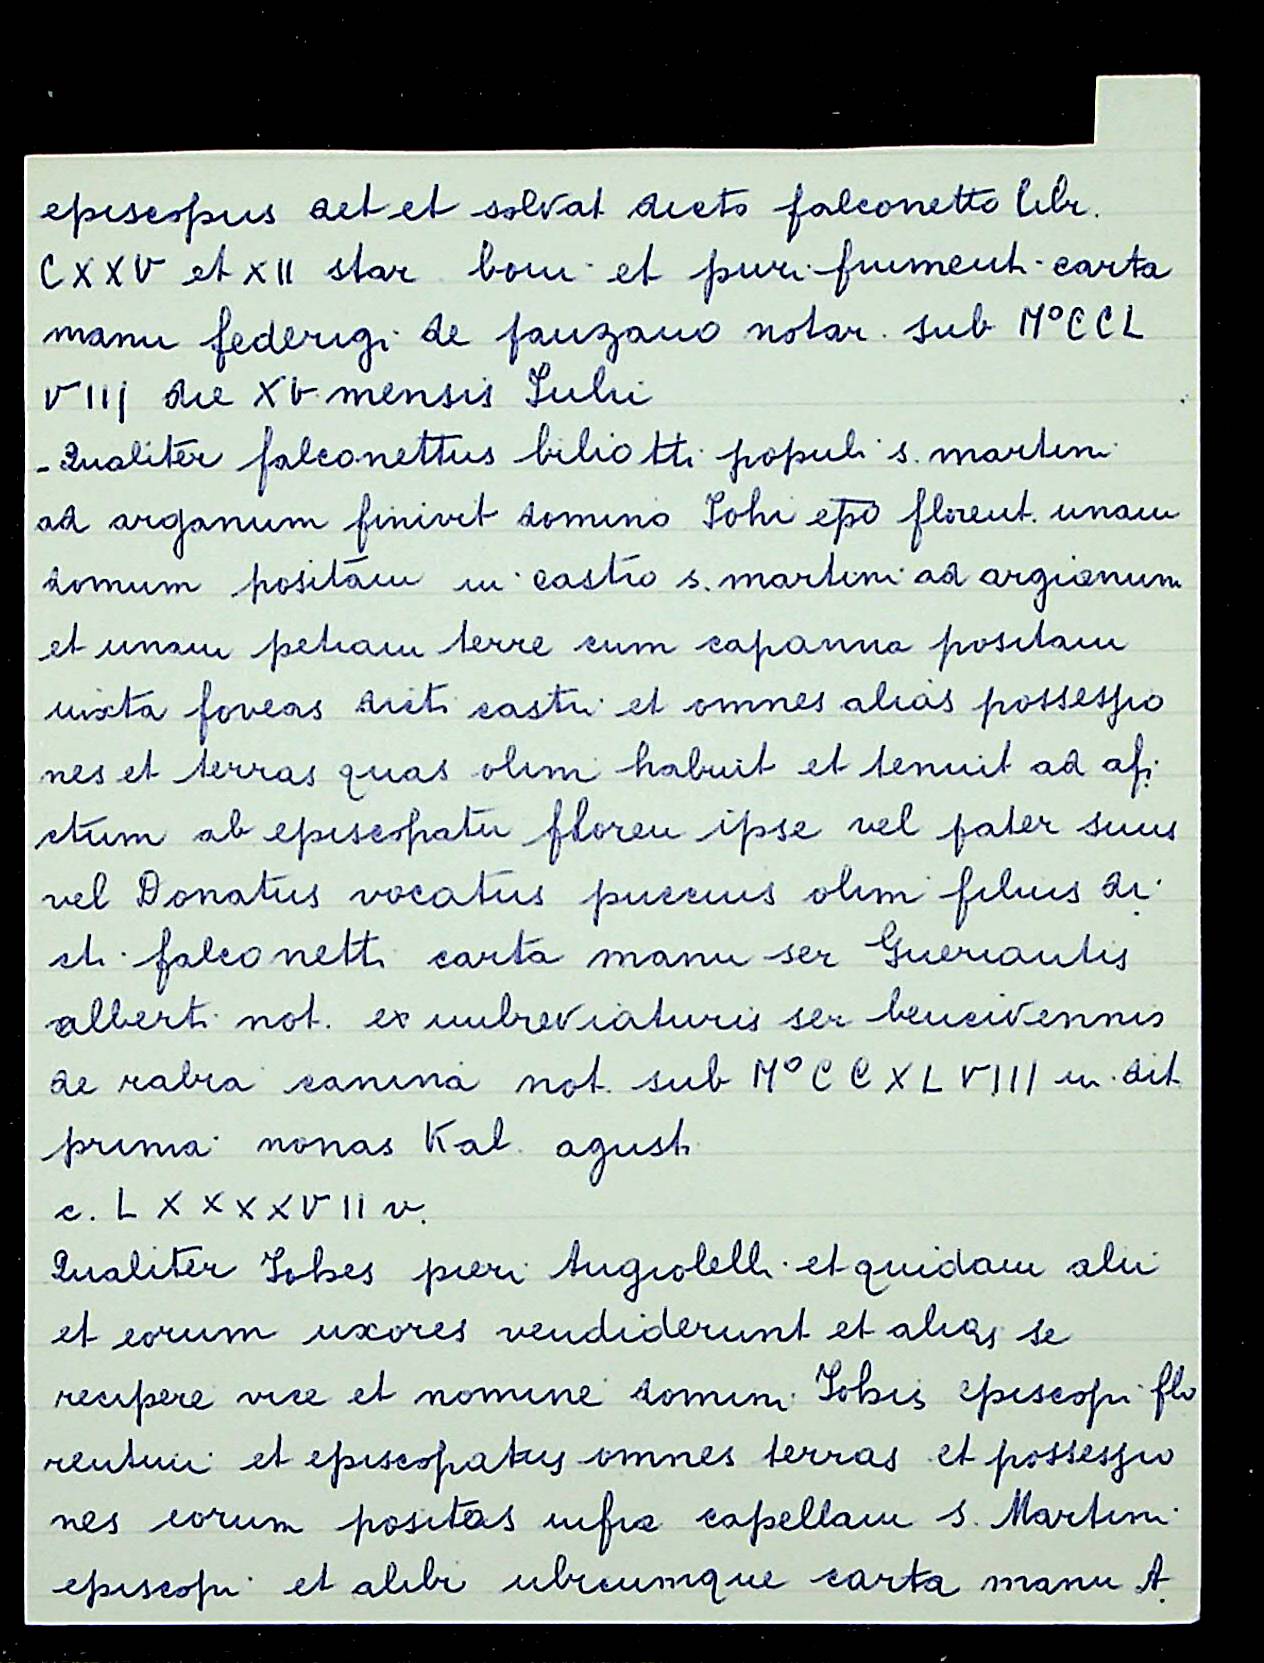 episcopus det et solvat dicto falconetto libr.
CXXV et XII star boni et puri frumenti carta
manu federigi de fanzano notar. sub M°CCL
VIII die XV mensis Iulii
- Qualiter falconettus biliotti populi s. martini
ad arganum finivit domino Iohi epo florent. unam
domum positam in castro s. martini ad argianum
et unam petiam terre cum capanna positam
iuxta foveas dicti castri et omnes alias possessio
nes et terras quas olim habuit et tenuit ad afi
ctum ab episcopatu floren ipse vel pater suus
vel Donatus vocatus puccius olim filius di
cti falconetti carta manu ser Gueriantis
alberti not. ex imbreviaturis ser bencivennis
de rabia canina not. sub M°CCXLVIII in dit
prima nonas Kal. agusti
c. LXXXXVII v.
Qualiter Iohes pieri Angiolelli et quidam alii
et eorum uxores vendiderunt et alias se
recipere vice et nomine domini Iohis episcopi flo
rentini et episcopatus omnes terras et possessio
nes eorum positas infra capellam S. Martini
episcopi et alibi ubicumque carta manu A.